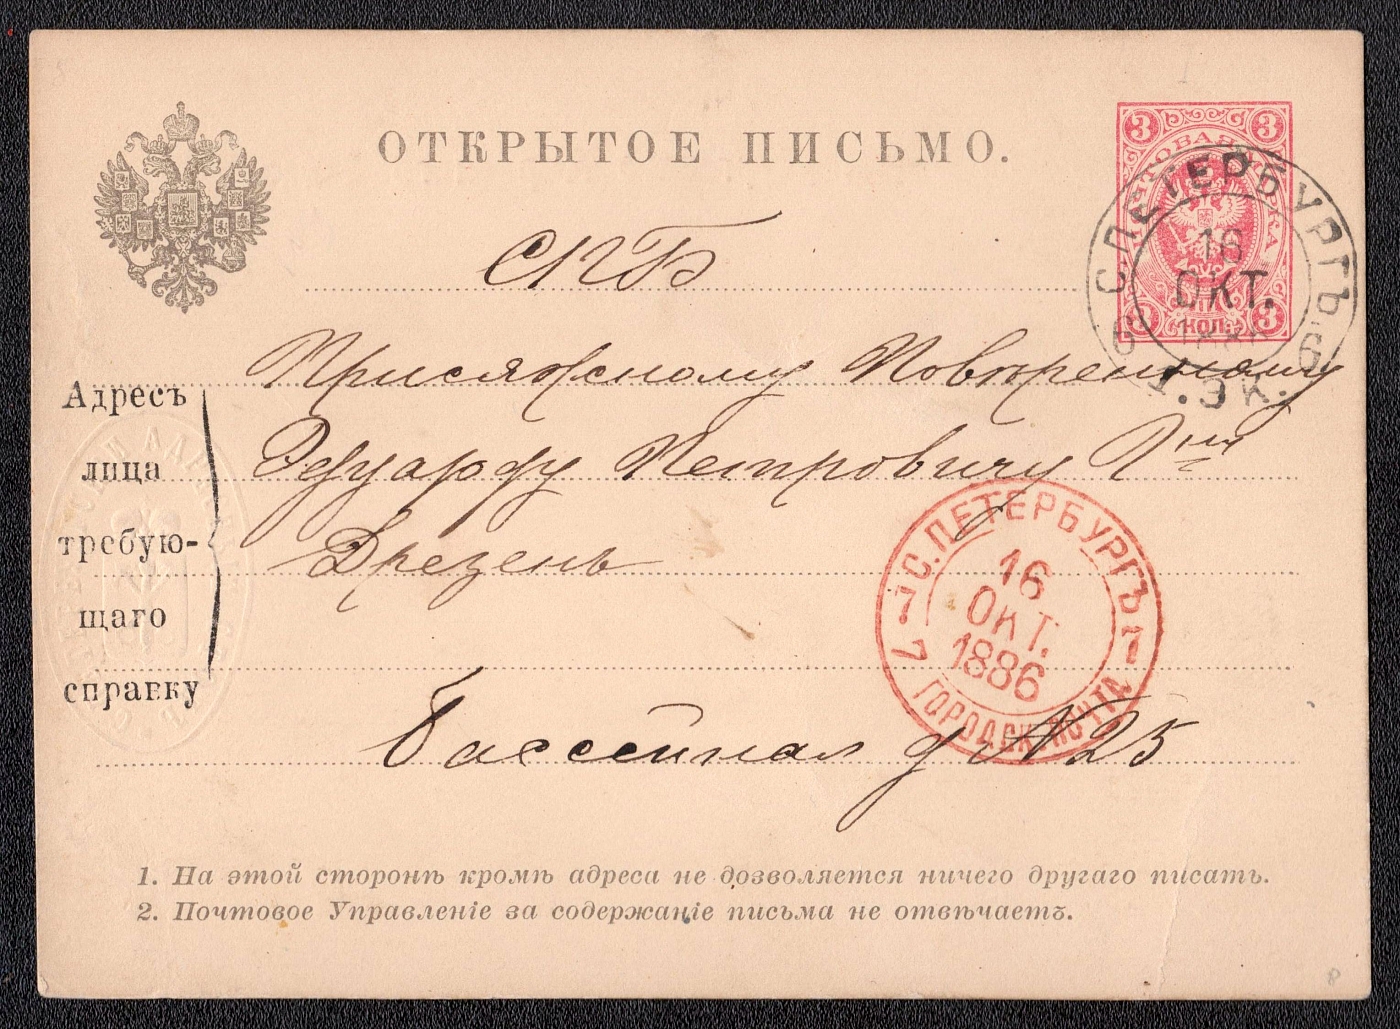 ОТКРЫТОЕ ПИСЬМО.
3 3
ПОЧТОВАЯ МАРКА
3 КОП. 3
С.ПЕТЕРБУРГЪ
16
ОКТ.
6 6
СПБ
Присяжному Повѣренному
Эдуарду Петровичу
Дрезенъ
Бассейная д № 25
Адресъ
лица
требую-
щаго
справку
С.ПЕТЕРБУРГЪ
16
ОКТ.
1886
7 7
7 ГОРОДСК. ПОЧТА
1. На этой сторонѣ кромѣ адреса не дозволяется ничего другаго писать.
2. Почтовое Управленіе за содержаніе письма не отвѣчаетъ.
8